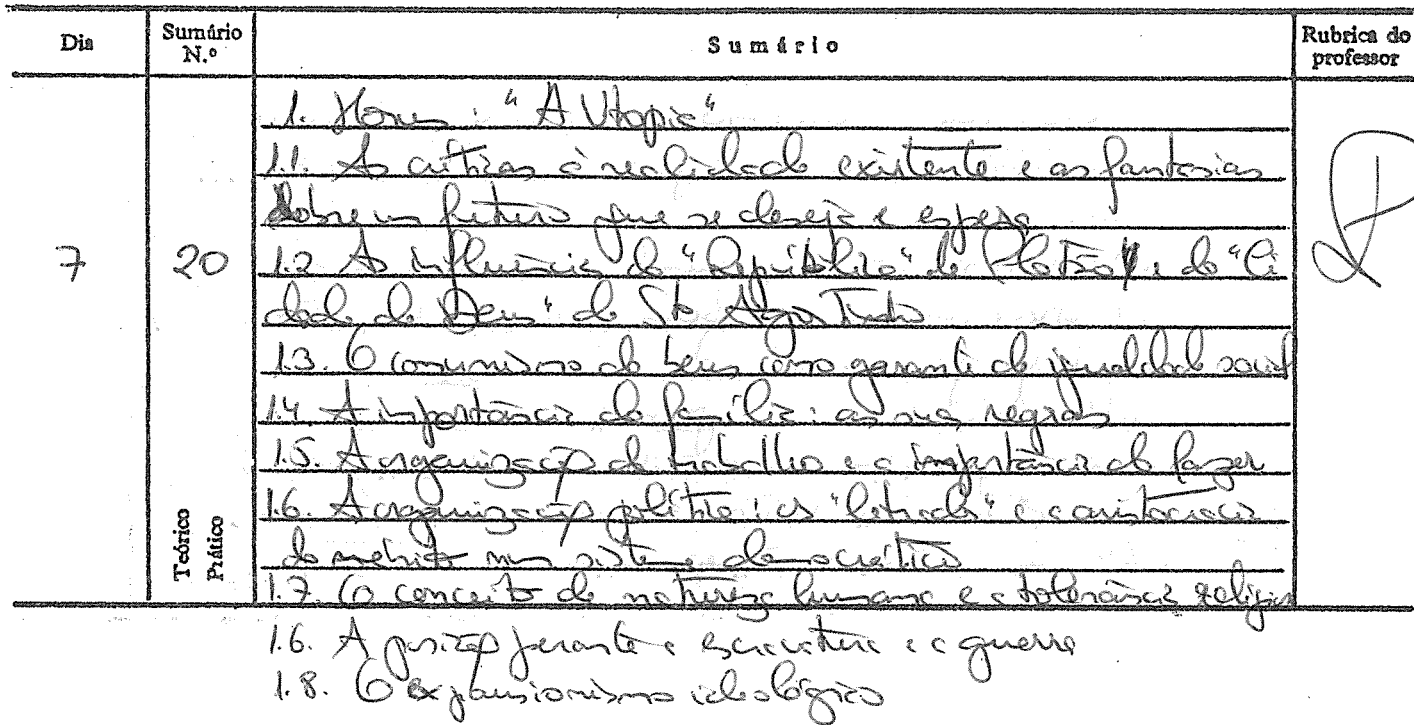 Dia
Sumário N.º
Sumário
Rubrica do professor
7
20
Teórico
Prático
1. Morus : "A Utopia"
1.1. As críticas à realidade existente e as fantasias
sobre um futuro que se deseja e espera
1.2 As influências da "República" de Platão e da "Ci
dade de Deus" de Sto Agostinho
1.3. O comunismo de bens como garante da igualdade social
1.4 A importância da família: as suas regras
1.5. A organização do trabalho e a importância do lazer
1.6. A organização política: os "letrados" e a aristocracia
do mérito num sistema democrático
1.7. O conceito de natureza humana e a tolerância religiosa
1.6. A posição perante a escravatura e a guerra
1.8. O expansionismo ideológico